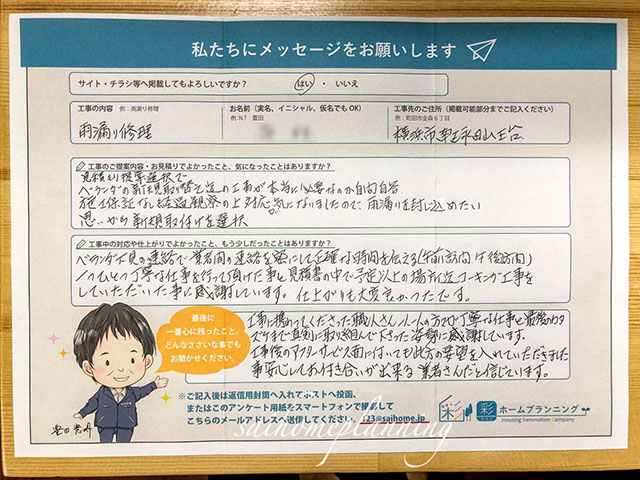 私たちにメッセージをお願いします
サイト・チラシ等へ掲載してもよろしいですか？ はい ・ いいえ
工事の内容 例：雨漏り修理
雨漏り修理
お名前（実名、イニシャル、仮名でもOK）
例：N.T 豊田
工事先のご住所（掲載可能部分までご記入ください）
例：町田市金森６丁目
横浜市
工事のご提案内容・お見積りでよかったこと、気になったことはありますか？
見積もり提案選択で
ベランダの新規取り替え迄の工事が本当に必要なのか自問自答
施工保証なし経過観察の上対応 気になりましたので、雨漏りを封じ込めたい
思いから新規取付けを選択
工事中の対応や仕上がりでよかったこと、もう少しだったことはありますか？
ベランダ下見の連絡で業者間の連絡を密にして正確な時間を伝える(午前訪問 午後訪問)
一つひとつ丁寧な仕事を行って頂けた事と見積書の中で予定以上の場所迄コーキング工事を
していただいた事に感謝しています。仕上がりも大変良かったです。
最後に
一番心に残ったこと、
どんなささいな事でも
お聞かせください。
工事に携わってくださった職人さん一人一人の方々が丁寧な仕事と最後のカタ
ズケまで真剣に取り組んで下さった姿勢に感謝しています。
工事後のアフターサービス面に付いても此方の要望を入れていただきました
事安心してお付き合いが出来る業者さんだと信じています。
※ご記入後は返信用封筒へ入れてポストへ投函、
またはこのアンケート用紙をスマートフォンで撮影して
こちらのメールアドレスへ送信してください。 123@saihome.jp
彩 ホームプランニング
Housing Renovation Company
saihomeplanning